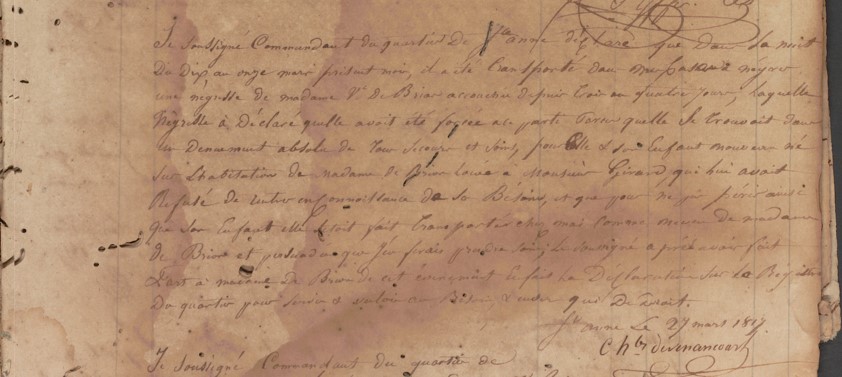 Je soussigné Commandant du quartier De Ste anne déclare que dans la nuit
Du dix au onze mars présent mois, il a été transporté dans ma case à nègres
une négresse de madame Ve De Brion accouchée depuis trois ou quatre jours, laquelle
Négresse à Déclaré qu'elle avait été forcée a ce parti parse quelle se trouvait dans
un Denuement absolu de tour secours et soins, pour Elle & son Enfant nouveau né
sur L'habitation de madame de Brion louée a monsieur Girard qui lui avait
Refusé de entrer en Connaissance de ses Bésoins, et que pour ne pas périr ainsi
que son Enfant elle s'était fait transporter chez moi comme neveu de madame
de Brion et persuadée que j'en ferais prendre soin; Le soussigné après avoir fait
part a madame De Brion de cet evenement En fait La Déclaration sur Le Régistre
Du quartier pour servir & valoir au Bésoin, à ceux qui De Droit.
Ste anne Le 27 mars 1817
Je soussigné Commandant du quartier de